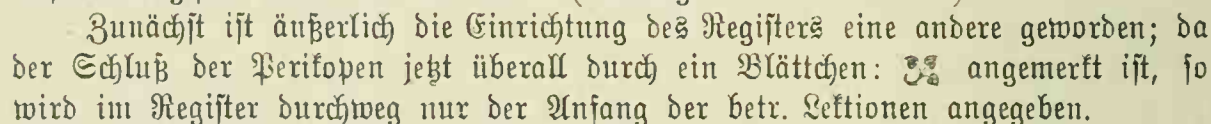 Zunächst ist äußerlich die Einrichtung des Registers eine andere geworden; da
der Schluß der Perikopen jetzt überall durch ein Blättchen: ❧ angemerkt ist, so
wird im Register durchweg nur der Anfang der betr. Lektionen angegeben.